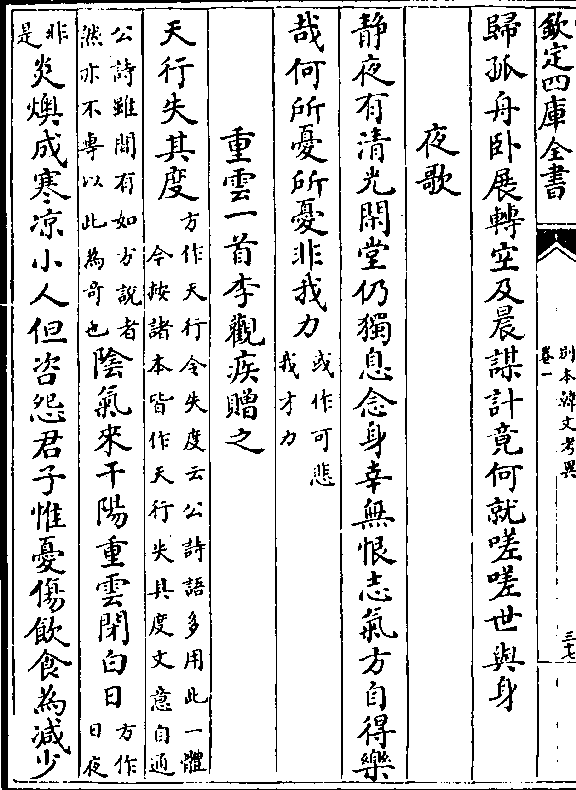 欽定四庫全書
別本韓文考異
卷一
三七
歸孤舟卧展轉空及晨謀計竟何就嗟嗟世與身
夜歌
静夜有清光閑堂仍獨息念身幸無恨志氣方自得樂
哉何所憂所憂非我力或作可悲我才力
重雲一首李觀疾贈之
天行失其度方作天行令失度云公詩語多用此一體今按諸本皆作天行失其度文意自通
公詩雖間有如方說者然亦不專以此為奇也陰氣來干陽重雲閉白日方作日夜
非是炎燠成寒凉小人但咨怨君子惟憂傷飲食為減少